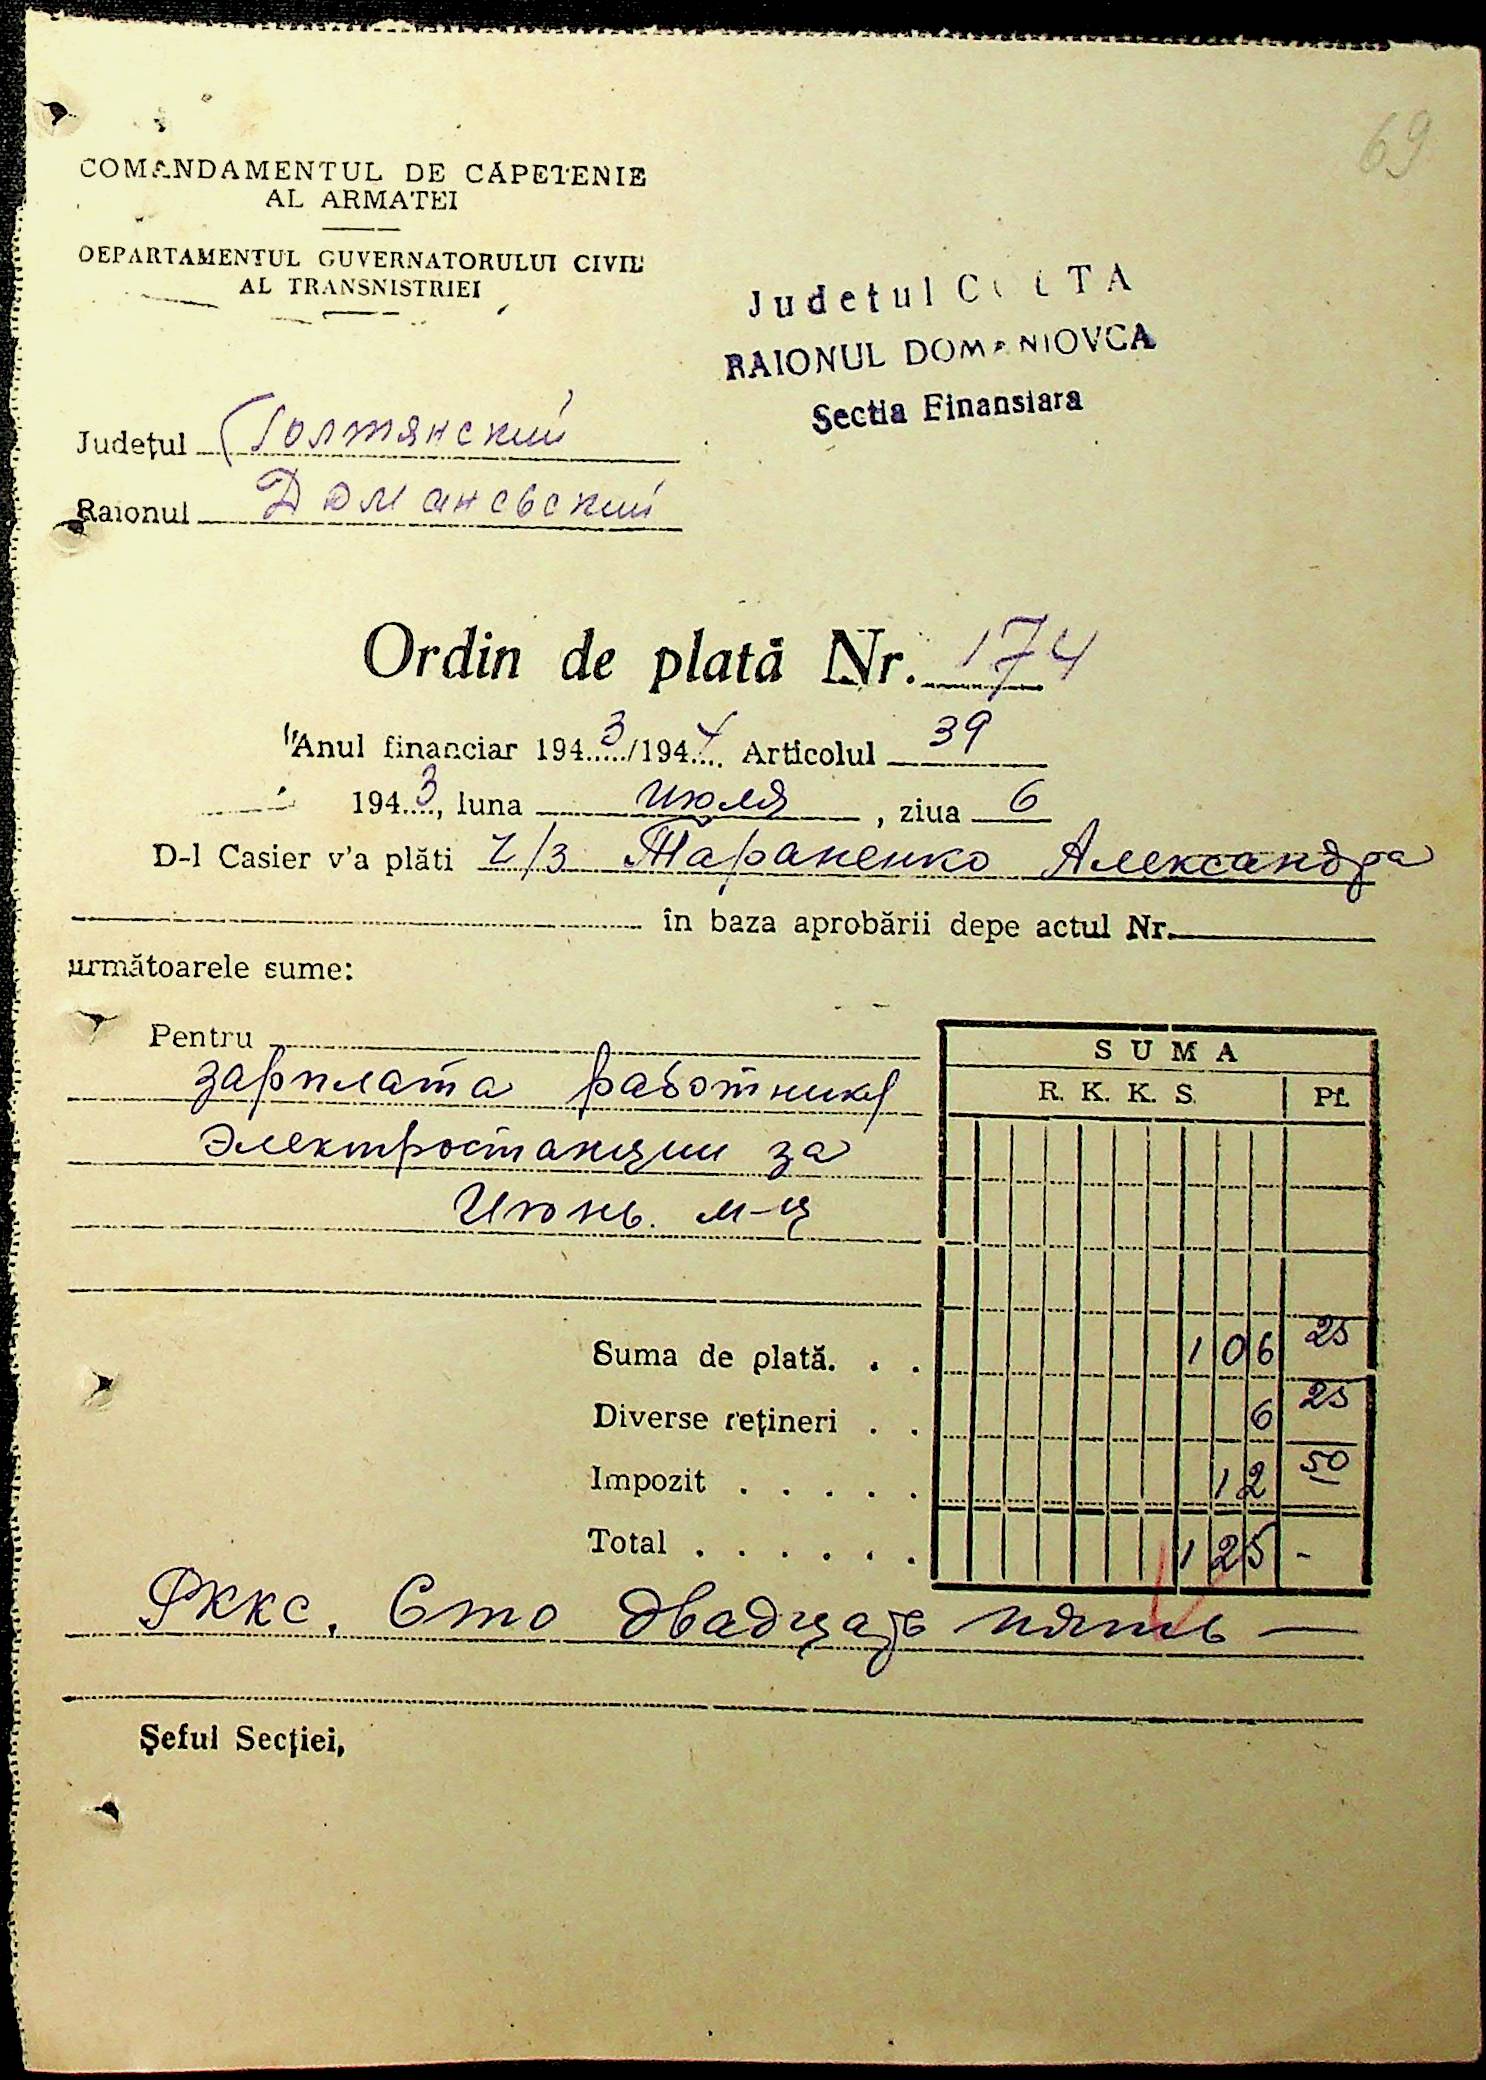 69
COMANDAMENTUL DE CĂPETENIE
AL ARMATEI
DEPARTAMENTUL GUVERNATORULUI CIVIL
AL TRANSNISTRIEI
Judeţul C L TA
RAIONUL DOMANIOVCA
Sectia Finansiara
Judeţul Голтянский
Raionul Доманевский
Ordin de plată Nr. 174
Anul financiar 1943/1944 Articolul 39
1943, luna июля, ziua 6
D-l Casier v'a plăti ч/з Тараненко Александра
în baza aprobării depe actul Nr.
următoarele sume:
Pentru
зарплата работнику
Электростанции за
Июнь м-ц
SUMA
R. K. K. S. Pf.
Suma de plată. . . 106 25
Diverse reţineri . . 6 25
Impozit . . . . . 12 50
Total . . . . . . 125 -
РККС. Сто двадцать пять —
Şeful Secţiei,